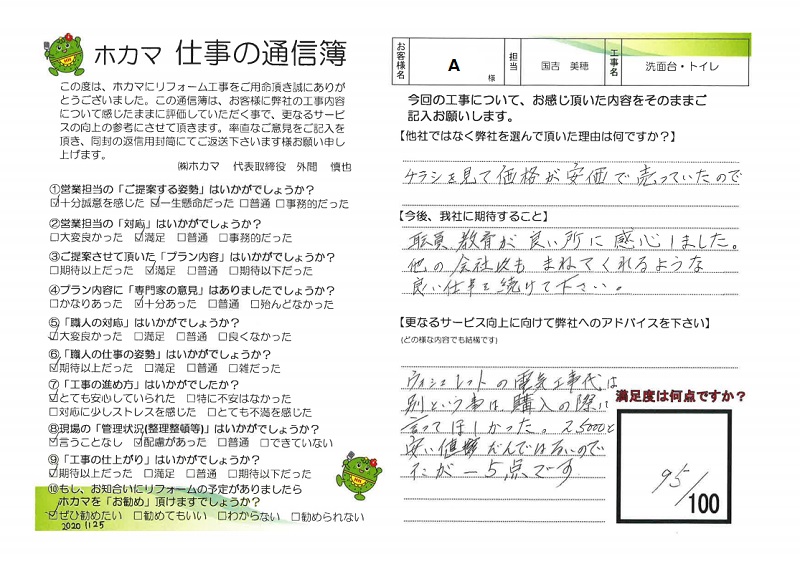 ホカマ 仕事の通信簿
この度は、ホカマにリフォーム工事をご用命頂き誠にありが
とうございました。この通信簿は、お客様に弊社の工事内容
について感じたままに評価していただく事で、更なるサービ
スの向上の参考にさせて頂きます。率直なご意見をご記入を
頂き、同封の返信用封筒にてご返送下さいます様お願い申し
上げます。
㈱ホカマ 代表取締役 外間 慎也
①営業担当の「ご提案する姿勢」はいかがでしょうか？
☑十分誠意を感じた ☑一生懸命だった □普通 □事務的だった
②営業担当の「対応」はいかがでしょうか？
□大変良かった ☑満足 □普通 □事務的だった
③ご提案させて頂いた「プラン内容」はいかがでしょうか？
□期待以上だった ☑満足 □普通 □期待以下だった
④プラン内容に「専門家の意見」はありましたでしょうか？
□かなりあった ☑十分あった □普通 □殆んどなかった
⑤「職人の対応」はいかがでしょうか？
☑大変良かった □満足 □普通 □良くなかった
⑥「職人の仕事の姿勢」はいかがでしょうか？
☑期待以上だった □満足 □普通 □雑だった
⑦「工事の進め方」はいかがでしたか？
☑とても安心していられた □特に不安はなかった
□対応に少しストレスを感じた □とても不満を感じた
⑧現場の「管理状況(整理整頓等)」はいかがでしょうか？
☑言うことなし ☑配慮があった □普通 □できていない
⑨「工事の仕上がり」はいかがでしょうか？
☑期待以上だった □満足 □普通 □期待以下だった
⑩もし、お知合いにリフォームの予定がありましたら
ホカマを「お勧め」頂けますでしょうか？
☑ぜひ勧めたい □勧めてもいい □わからない □勧められない
2020 1125
お客様名 A 様 担当 国吉 美穂 工事名 洗面台・トイレ
今回の工事について、お感じ頂いた内容をそのままご
記入お願いします。
【他社ではなく弊社を選んで頂いた理由は何ですか？】
チラシを見て価格が安価で売っていたので
【今後、我社に期待すること】
職員教育が良い所に感心しました。
他の会社にも まねてくれるような
良い仕事を続けて下さい。
【更なるサービス向上に向けて弊社へのアドバイスを下さい】
(どの様な内容でも結構です)
ウォシュレットの電気工事代は
別という事は購入の際に
言ってほしかった。25000と
安い値段ではないので
それが－5点です
満足度は何点ですか？
95/100